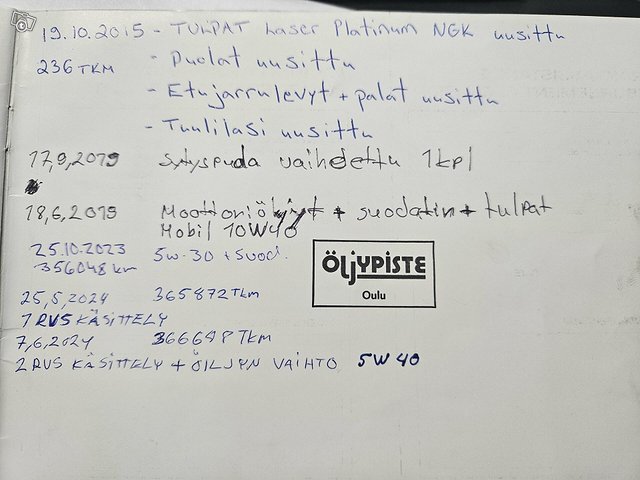 19.10.2015 - TULPAT Laser Platinum NGK uusittu
236 TKM - Puolat uusittu
- Etujarrulevyt + palat uusittu
- Tuulilasi uusittu
17,9,2019 sytyspuola vaihdettu 1kpl
18,6,2019 Moottoriöljyt + suodatin + tulpat
Mobil 10W40
25.10.2023 5w-30 + suod.
356048 km
ÖLJYPISTE
Oulu
25,5,2024 365872 TKm
1 RVS KÄSITTELY
7,6,2024 366648 TKm
2 RVS KÄSITTELY + ÖILJYN VAIHTO 5W40